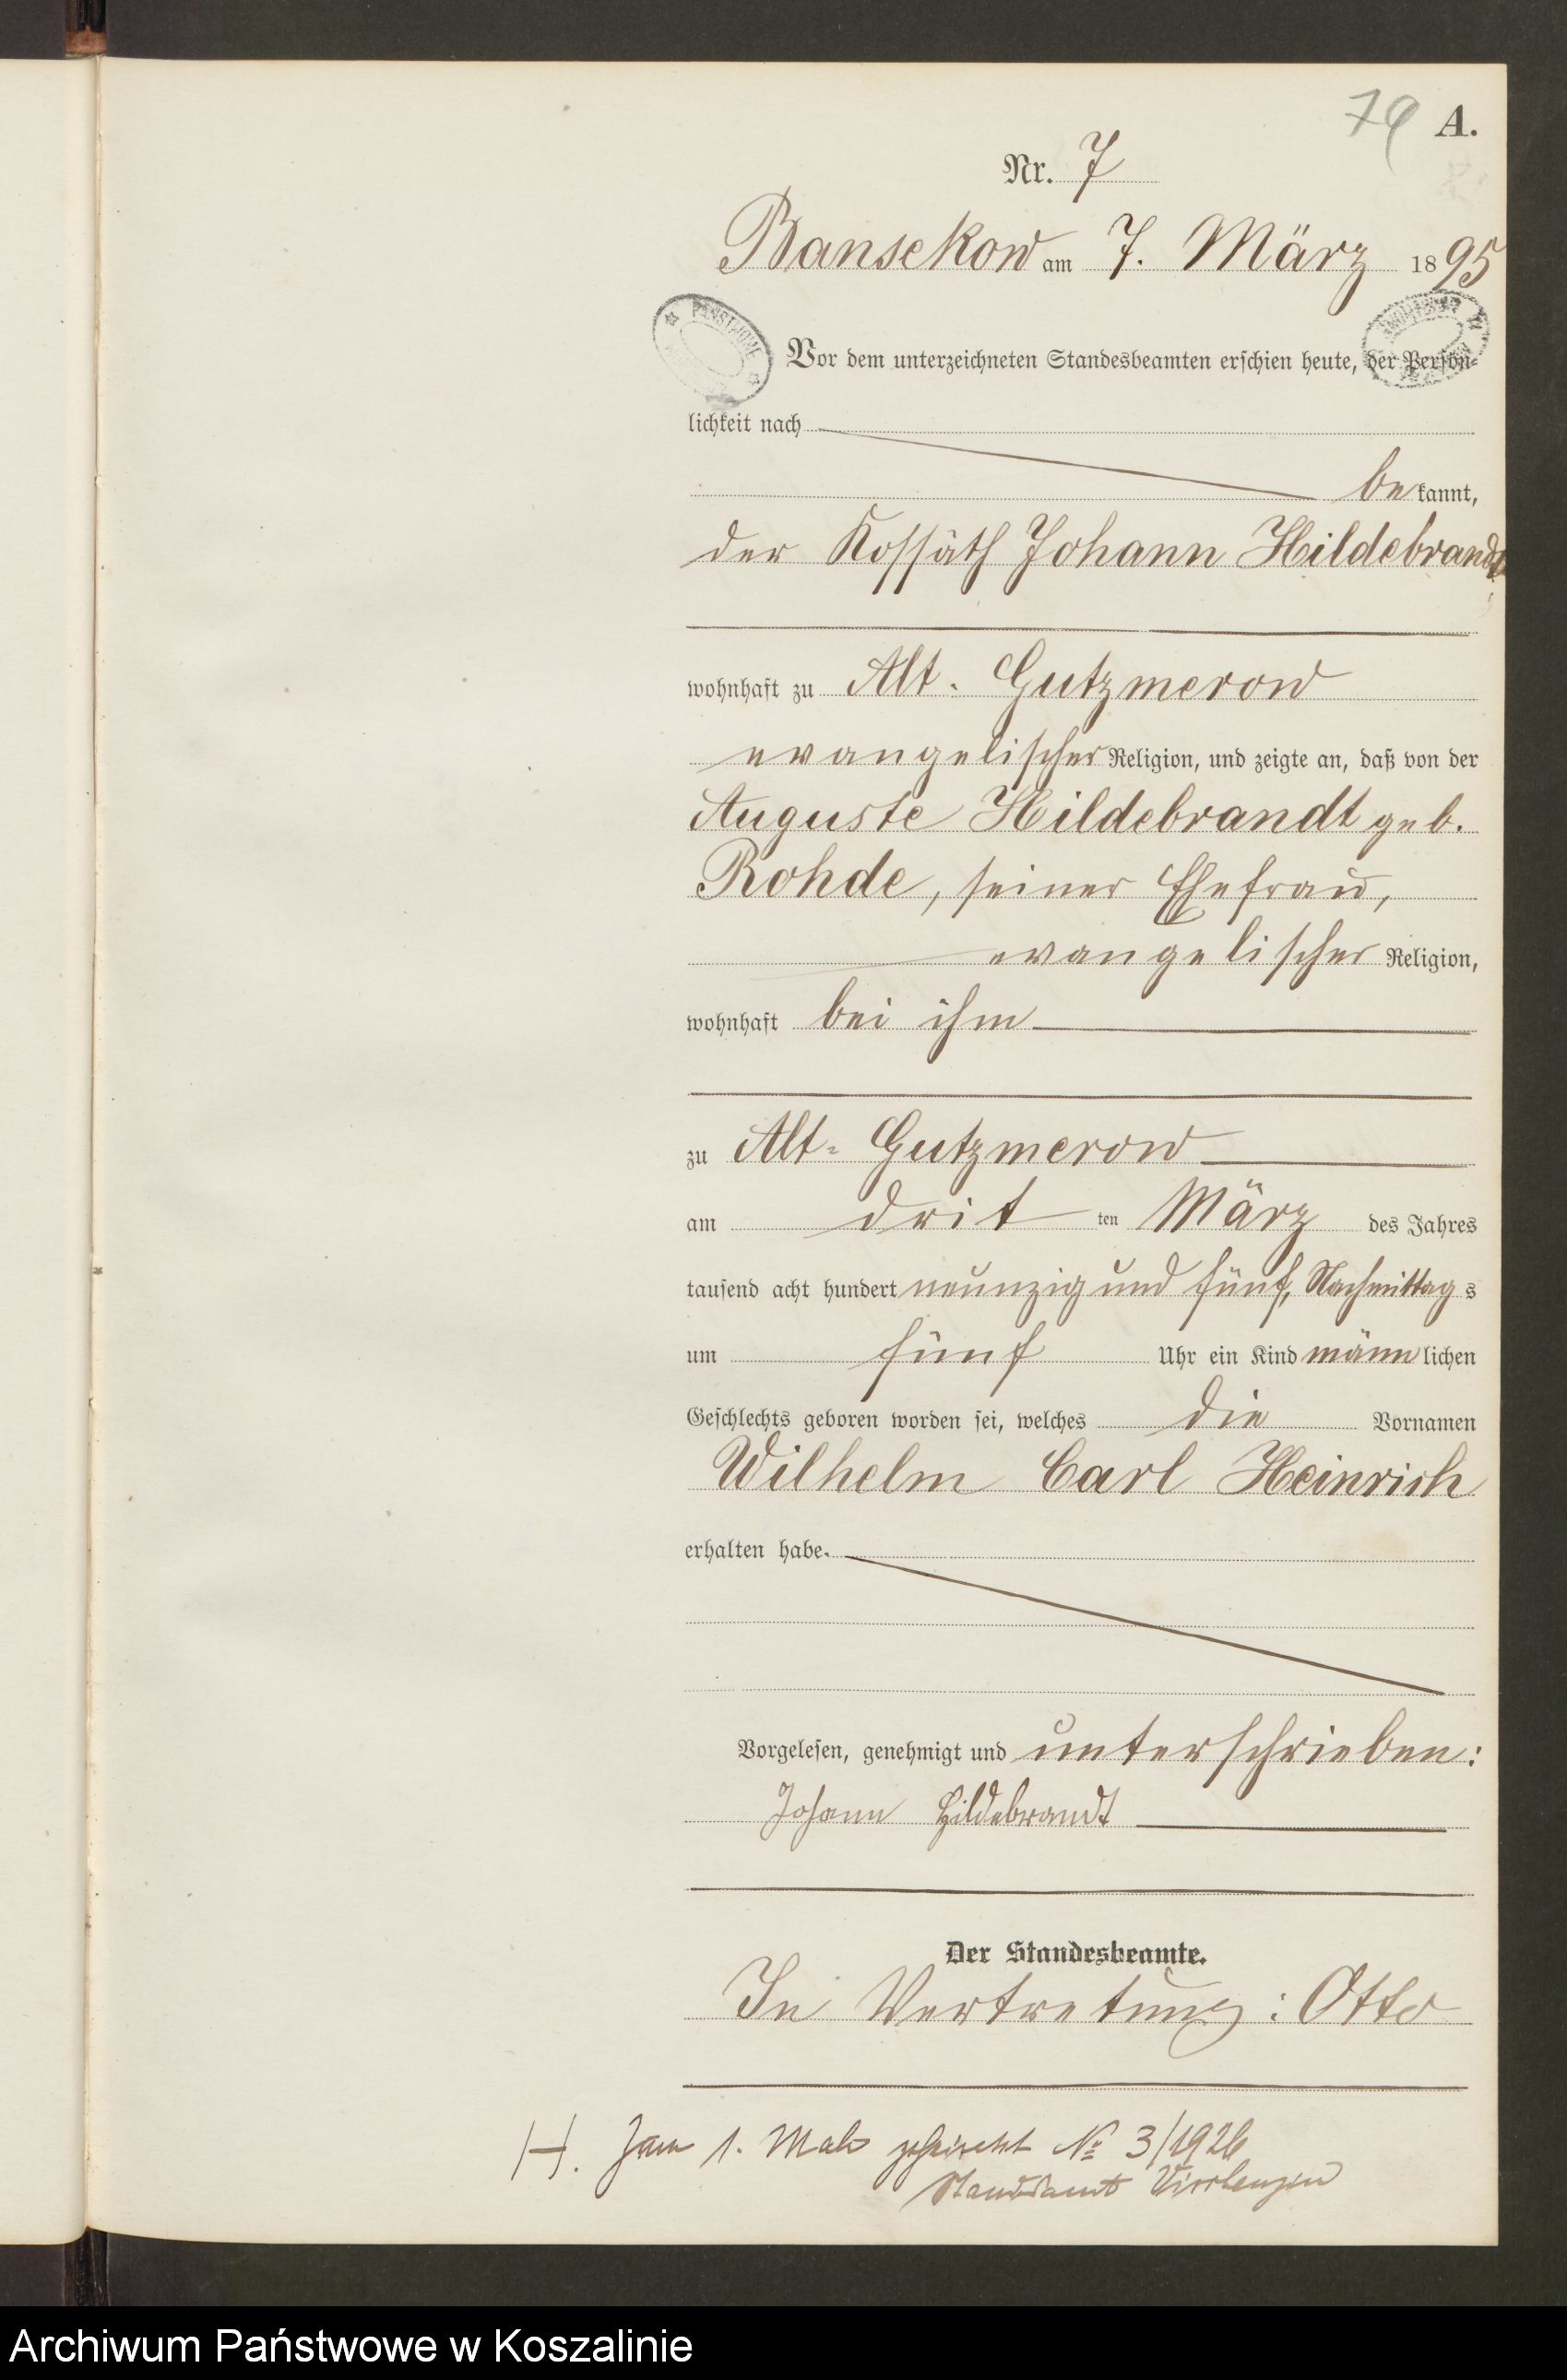 79 A.
Nr. 7
Bansekow am 7. März 1895
PAŃSTWOWE
Vor dem unterzeichneten Standesbeamten erschien heute, der Persön-
lichkeit nach
bekannt,
der Kossäth Johann Hildebrandt
wohnhaft zu Alt-Gutzmerow
evangelischer Religion, und zeigte an, daß von der
Auguste Hildebrandt geb.
Rohde, seiner Ehefrau,
evangelischer Religion,
wohnhaft bei ihm
zu Alt-Gutzmerow
am dritten März des Jahres
tausend acht hundert neunzig und fünf, Nachmittags
um fünf Uhr ein Kind männlichen
Geschlechts geboren worden sei, welches die Vornamen
Wilhelm Carl Heinrich
erhalten habe.
Vorgelesen, genehmigt und unterschrieben:
Johann Hildebrandt
Der Standesbeamte.
In Vertretung: Otto
H. Zum 1. Male geheiratet № 3/1926
Standesamt
Archiwum Państwowe w Koszalinie